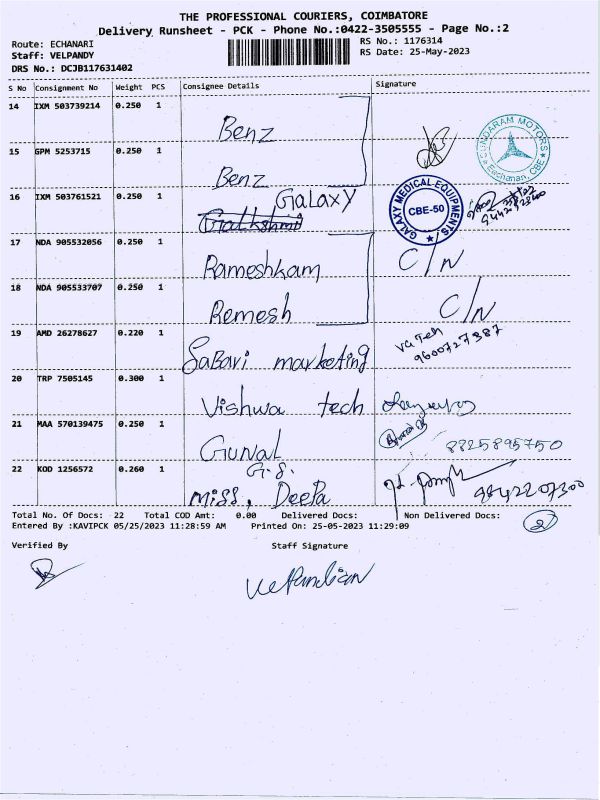 THE PROFESSIONAL COURIERS, COIMBATORE
Delivery Runsheet - PCK - Phone No.:0422-3505555 - Page No.:2
Route: ECHANARI RS No.: 1176314
Staff: VELPANDY RS Date: 25-May-2023
DRS No.: DCJB117631402
S No Consignment No Weight PCS Consignee Details Signature
14 IXM 503739214 0.250 1
Benz
SUNDARAM MOTORS
Eachanari, CBE
15 GPM 5253715 0.250 1
Benz
16 IXM 503761521 0.250 1 Galaxy
GALAXY MEDICAL EQUIPMENTS
CBE-50
17 NDA 905532056 0.250 1
Rameshkam C/N
18 NDA 905533707 0.250 1
Remesh C/N
19 AMD 26278627 0.220 1
Sabari marketing 9600727387
20 TRP 7505145 0.300 1
Vishwa tech
21 MAA 570139475 0.250 1
Gunal 8825895750
22 KOD 1256572 0.260 1 G.S.
Miss, Deepa 9842207300
Total No. Of Docs: 22 Total COD Amt: 0.00 Delivered Docs: Non Delivered Docs: 2
Entered By :KAVIPCK 05/25/2023 11:28:59 AM Printed On: 25-05-2023 11:29:09
Verified By Staff Signature
Velpandian